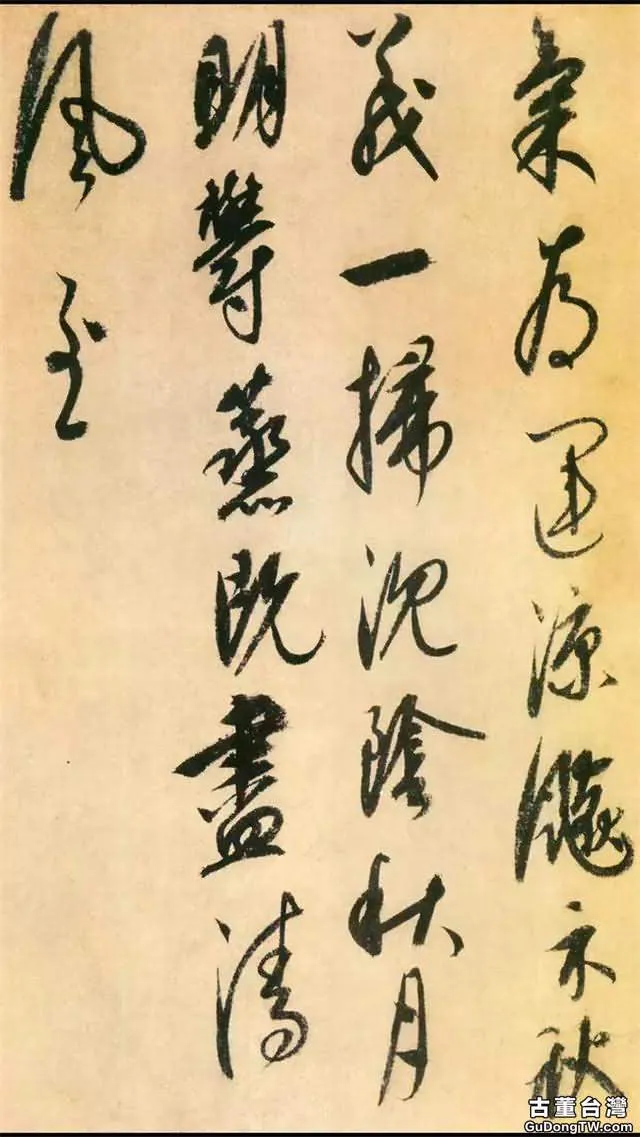 氣為運涼飈示秋
義一掃沈陰秋月
明鬱蒸既盡清
風至
古董台灣
GuDongTW.com